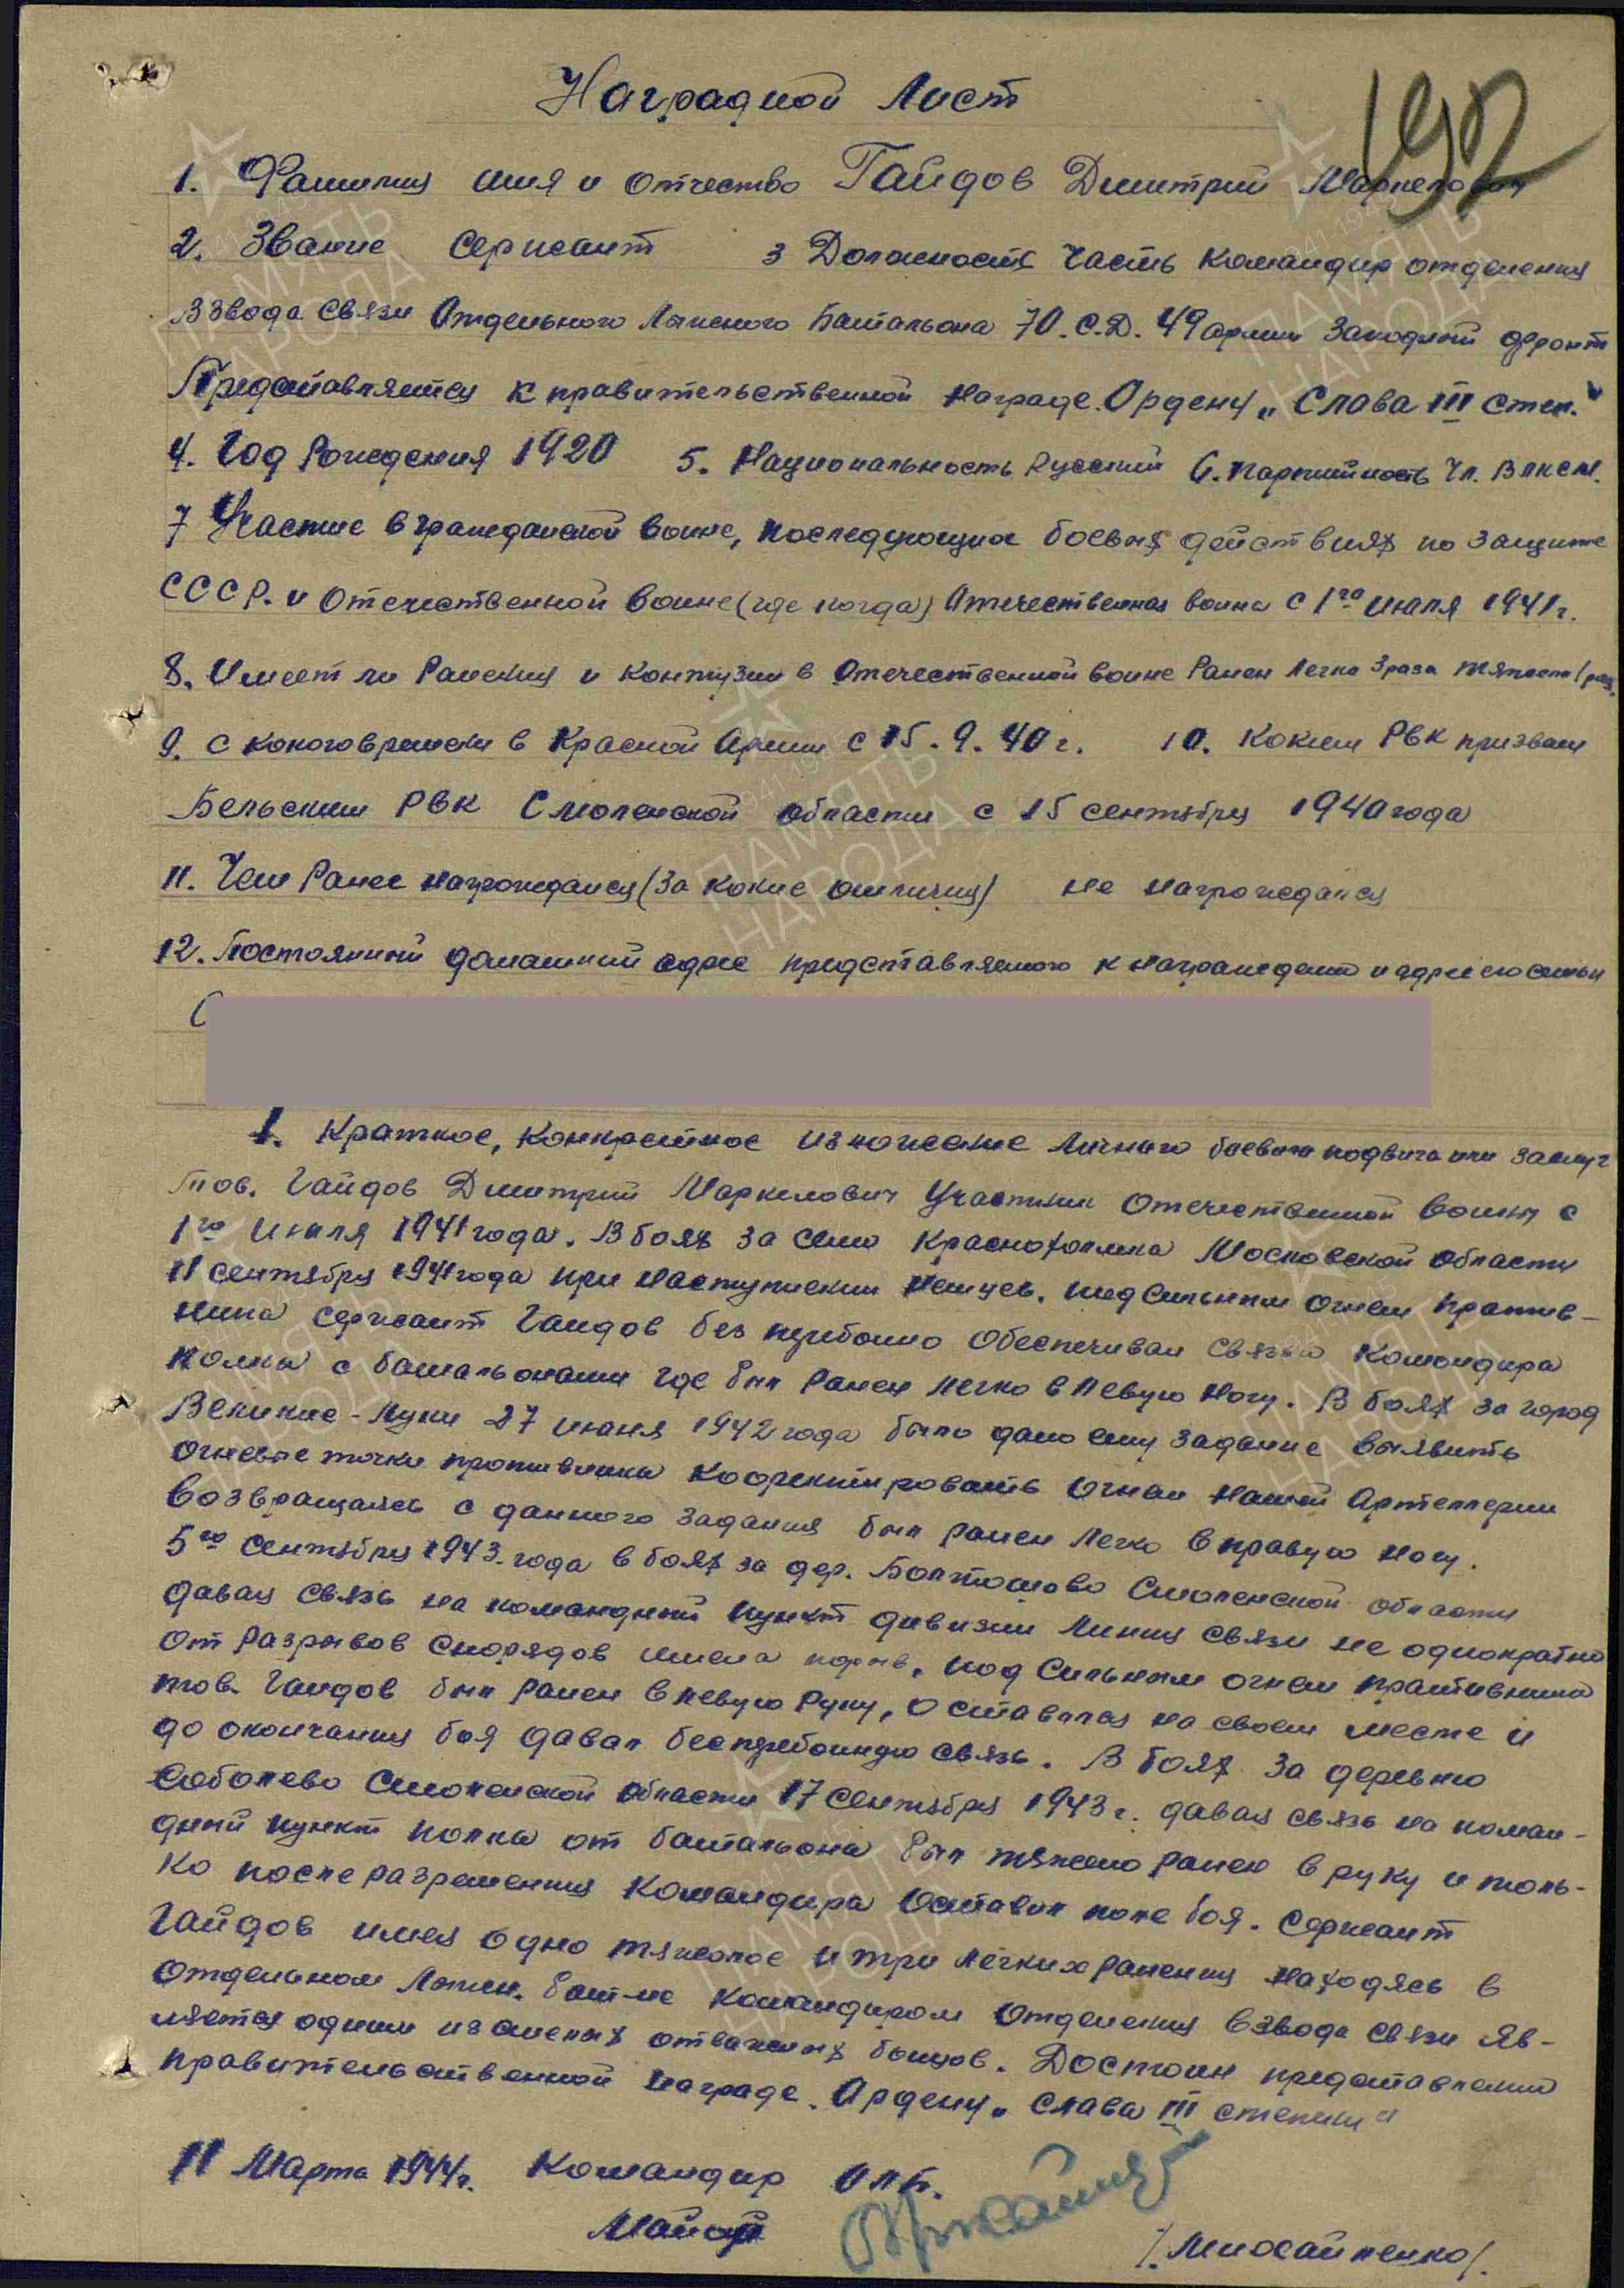 Наградной Лист
192
1. Фамилия имя и отчество Гайдов Дмитрий Маркелович
2. Звание Сержант 3 Должность Часть Командир отделения
Взвода Связи Отдельного Лыжного Батальона 70. С.Д. 49 армии Западный фронт
Представляется к правительственной награде. Ордену „Слава III степ."
4. Год Рождения 1920 5. Национальность Русский 6. партийность Чл. ВЛКСМ.
7 Участие в гражданской войне, последующих боевых действиях по защите
СССР. и Отечественной войне (где когда) Отечественная война с 1го июля 1941г.
8. Имеет ли Ранения и Контузии в Отечественной войне Ранен Легко 3 раза тяжело 1 раз.
9. С какого времени в Красной Армии с 15.9.40г. 10. Каким РВК призван
Бельским РВК Смоленской области с 15 сентября 1940 года
11. Чем Ранее награждался (За какие отличия) не награждался
12. Постоянный домашний адрес представляемого к награждению и адрес его семьи
С
1. Краткое, Конкретное изложение личного боевого подвига или заслуг
Тов. Гайдов Дмитрий Маркелович Участник Отечественной войны с
1го июля 1941 года. В боях за село Краснохолмка Московской области
11 сентября 1941 года при наступлении Немцев. под сильным огнем против-
ника сержант Гайдов без перебойно обеспечивал связью Командира
полка с батальонами где был ранен легко в левую ногу. В боях за город
Великие-Луки 27 июня 1942 года было дано ему задание выявить
огневые точки противника Кооректировать огнем нашей Артеллерии
Возвращаясь с данного задания был ранен Легко в правую ногу.
5го сентября 1943 года в боях за дер. Болтошово Смоленской области
давая связь на командный пункт дивизии линия связи не однократно
от разрывов снорядов имела порыв, под сильным огнем противника
тов. Гайдов был ранен в левую руку, оставался на своем месте и
до окончания боя давал бесперебойную связь. В боях за деревню
Соболево Смоленской области 17 сентября 1943г. давая связь на коман-
дный пункт полка от батальона был тяжело ранен в руку и толь-
ко после разрешения Командира оставил поле боя. Сержант
Гайдов имея одно тяжолое и три легких ранения находясь в
Отдельном Лыжн. бат-не командиром отделения взвода связи яв-
ляется одним из смелых отважных бойцов. Достоин представления
правительственной награде. Ордену „Слава III степени"
11 Марта 1944г. Командир ОЛБ.
Майор
/.Мисайленко/.
ПАМЯТЬ
НАРОДА